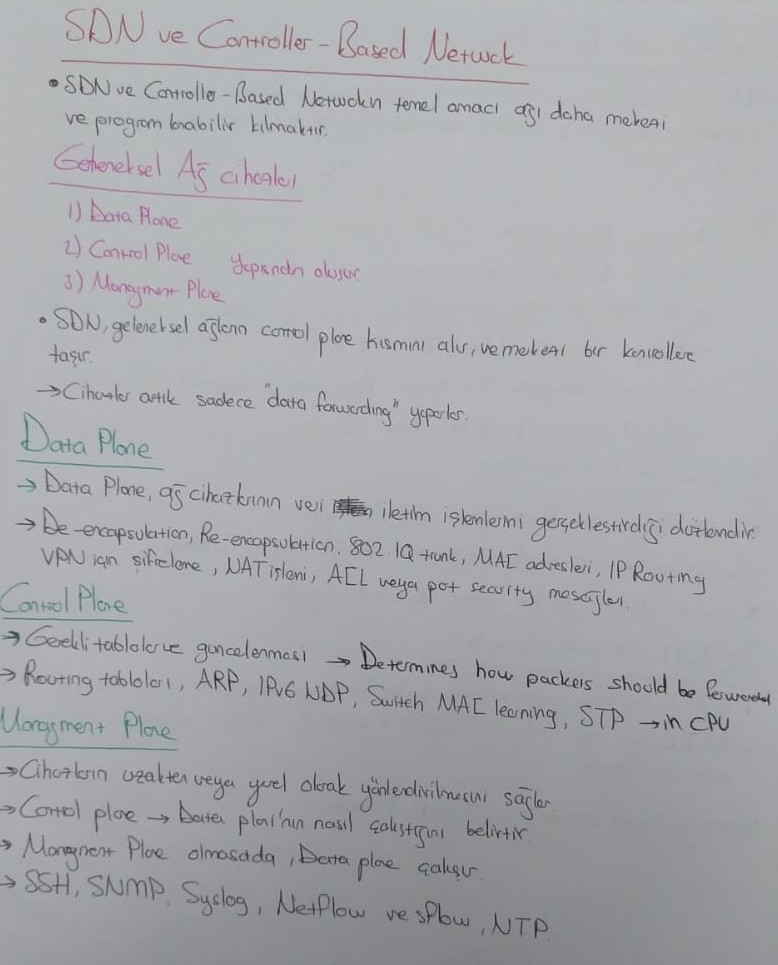 SDN ve Controller-Based Netwck
• SDN ve Controller-Based Networkün temel amacı ağı daha merkezi
ve programlanabilir kılmaktır.
Geleneksel Ağ cihazları
1) Data Plane
2) Control Plane yapısından oluşur.
3) Managment Plane
• SDN, geleneksel ağların control plane kısmını alır, ve merkezi bir kontrollere
taşır.
→ Cihazlar artık sadece "data forwarding" yaparlar.
Data Plane
→ Data Plane, ağ cihazlarının veri iletim işlemlerini gerçekleştirdiği düzlemdir.
→ De-encapsulation, Re-encapsulation, 802.1Q trunk, MAC adresleri, IP Routing
VPN için şifreleme, NAT işlemi, ACL veya port security mesajları.
Control Plane
→ Gerekli tablolar ve güncellenmesi → Determines how packers should be forwarded
→ Routing tabloları, ARP, IPv6 NDP, Switch MAC learning, STP → in CPU
Managment Plane
→ Cihazların uzaktan veya yerel olarak yönlendirilmesini sağlar
→ Control plane → Data plane'nın nasıl çalıştığını belirtir
→ Managment Plane olmasada, Data plane çalışır.
→ SSH, SNMP, Syslog, NetFlow ve sFlow, NTP